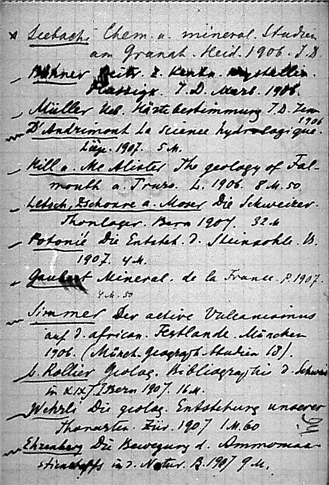 x Seebach Chem. u. mineral. Studien
am Granat. Heid. 1906. I.D.
Beitr. z. Kentn. krystallin.
I.D. Marb. 1906.
Müller Ueb. Härtebestimmung I.D. Jena
1906
D'Andrimont La Science hydrologique.
Liège. 1907. 5 M.
Hill u. Mc Alister The geology of Fal-
mouth a. Truro. L. 1906. 8 M. 50
Letsch, Zschokke u. Moser Die Schweizer.
Thonlager. Bern 1907. 32 M
Potonié Die Entsteh. d. Steinkohle. B.
1907. 4 M.
Gaubert Minéral. de la France. P. 1907.
4 M. 50
Simmer Der active Vulcanismus
auf d. african. Festlande. München
1906. (Münch. Geograph. Studien 18).
L. Rollier Geolog. Bibliographie d. Schweiz
Bern 1907. 16 M.
Wehrli Die geolog. Entstehung unserer
Thonarten. Zür. 1907 1 M. 60
Ehrenberg Die Bewegung d. Ammoniak-
stickstoffs in d. Natur. B. 1907 9 M.